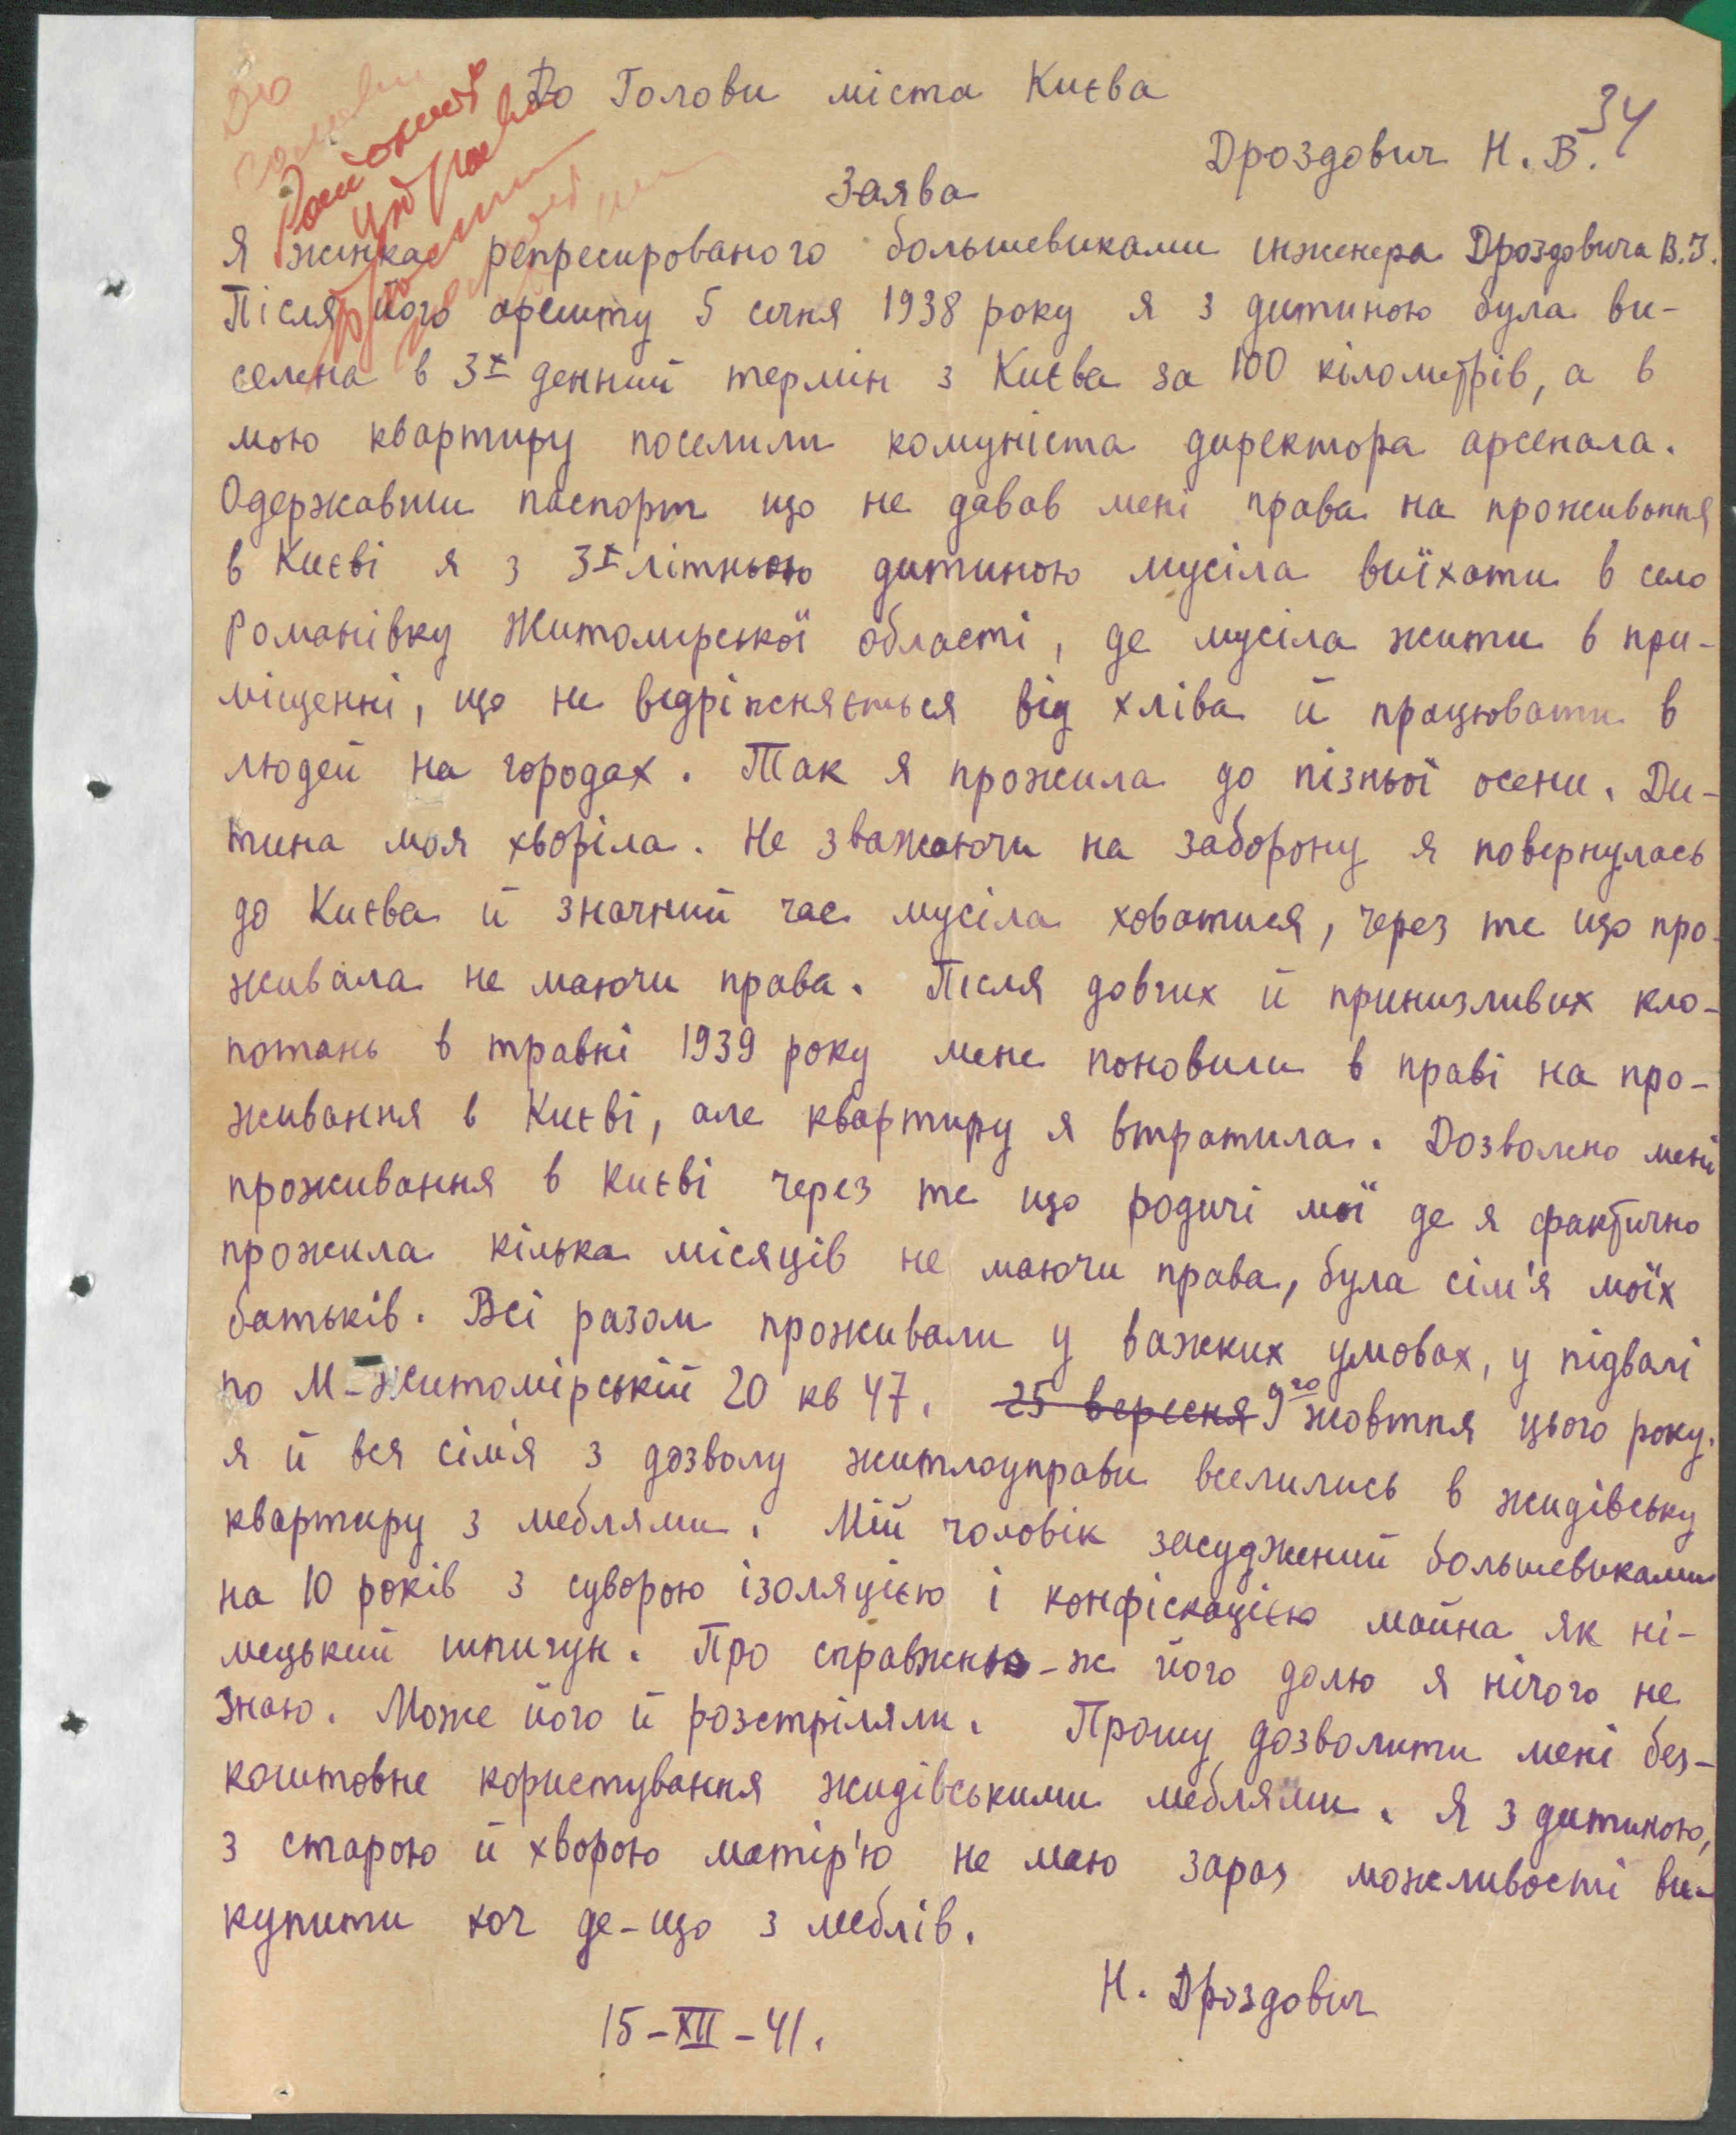 До Голови міста Києва
34
Дроздович Н. В.
Заява
Я жінка репресированого большевиками інженера Дроздовича В.І.
Після його арешту 5 січня 1938 року я з дитиною була ви-
селена в 3х денний термін з Києва за 100 кілометрів, а в
мою квартиру поселили комуніста директора арсенала.
Одержавши паспорт що не давав мені права на проживання
в Києві я з 3х літньою дитиною мусіла виїхати в село
Романівку Житомирської області, де мусіла жити в при-
міщенні, що не відріжняється від хліва й працювати в
людей на городах. Так я прожила до пізньої осени. Ди-
тина моя хворіла. Не зважаючи на заборону я повернулась
до Києва й значний час мусіла ховатися, через те що про-
живала не маючи права. Після довгих й принизливих кло-
потань в травні 1939 року мене поновили в праві на про-
живання в Києві, але квартиру я втратила. Дозволено мені
проживання в Києві через те що родичі мої де я фактично
прожила кілька місяців не маючи права, була сім'я моїх
батьків. Всі разом проживали у важких умовах, у підвалі
по М-Житомірській 20 кв 47. 25 вересня 9го жовтня цього року.
я й вся сім'я з дозволу житлоуправи вселились в жидівську
квартиру з меблями. Мій чоловік засуджений большевиками
на 10 років з суворою ізоляцією і конфіскацією майна як ні-
мецький шпигун. Про справжню-ж його долю я нічого не
знаю. Може його й розстріляли. Прошу дозволити мені без-
коштовне користування жидівськими меблями. Я з дитиною,
з старою й хворою матір'ю не маю зараз можливості ви-
купити хоч де-що з меблів.
Н. Дроздович
15-XII-41.